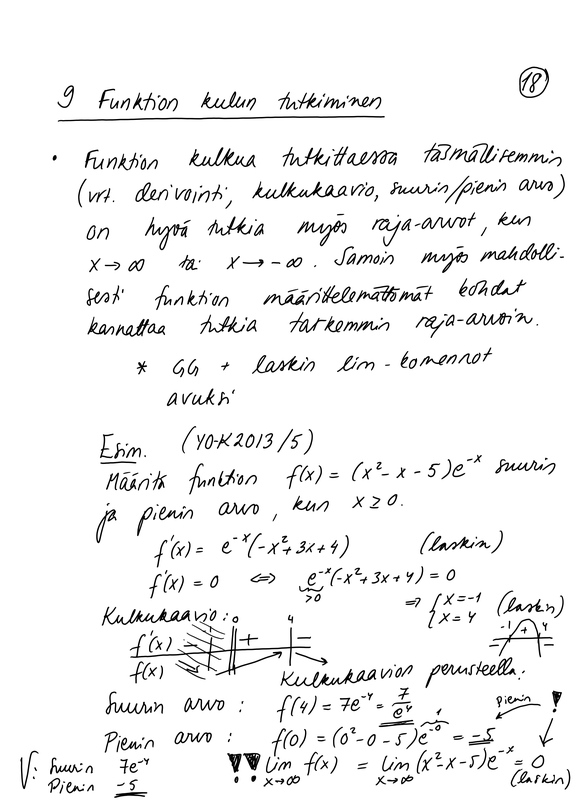 18
9 Funktion kulun tutkiminen
• Funktion kulkua tutkittaessa täsmällisemmin
(vrt. derivointi, kulkukaavio, suurin/pienin arvo)
on hyvä tutkia myös raja-arvot, kun
x → ∞ tai x → -∞. Samoin myös mahdolli-
sesti funktion määrittelemättömät kohdat
kannattaa tutkia tarkemmin raja-arvoin.
* GG + laskin lim-komennot
avuksi
Esim. (YO-K2013/5)
Määritä funktion f(x) = (x² - x - 5)e⁻ˣ suurin
ja pienin arvo, kun x ≥ 0.
f'(x) = e⁻ˣ(-x²+3x+4) (laskin)
f'(x) = 0 ⇔ e⁻ˣ(-x²+3x+4) = 0
>0 ⇒ { x = -1 (laskin)
x = 4
Kulkukaavio: 0 4 -1 + 4
f'(x) - + -
f(x)
Kulkukaavion perusteella:
Suurin arvo: f(4) = 7e⁻⁴ = 7/e⁴ pienin !
Pienin arvo: f(0) = (0²-0-5)e⁻⁰ = -5
1
V: Suurin 7e⁻⁴ !! lim x→∞ f(x) = lim x→∞ (x²-x-5)e⁻ˣ = 0
Pienin -5 (laskin)